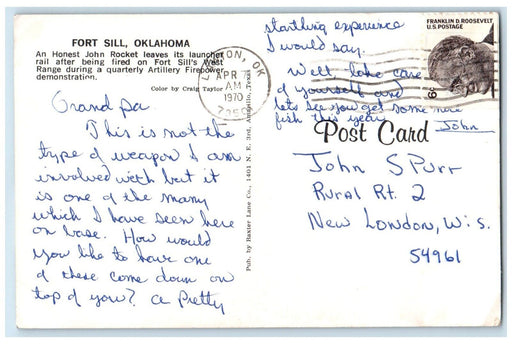 FORT SILL, OKLAHOMA
An Honest John Rocket leaves its launcher
rail after being fired on Fort Sill's West
Range during a quarterly Artillery Firepower
demonstration.
Color by Craig Taylor
Grandpa
This is not the
type of weapon I am
involved with but it
is one of the many
which I have seen here
on base. How would
you like to have one
of these come down on
top of you? A Pretty
startling experience
I would say.
Well take care
of yourself and
lets see you get some more
fish this year
John
Pub. by Baxter Lane Co., 1401 N. E. 3rd, Amarillo, Texas
LAWTON, OK
APR 7
AM
1970
FRANKLIN D. ROOSEVELT
U.S. POSTAGE
6c
Post Card
John S Purr
Rural Rt. 2
New London, Wis.
54961